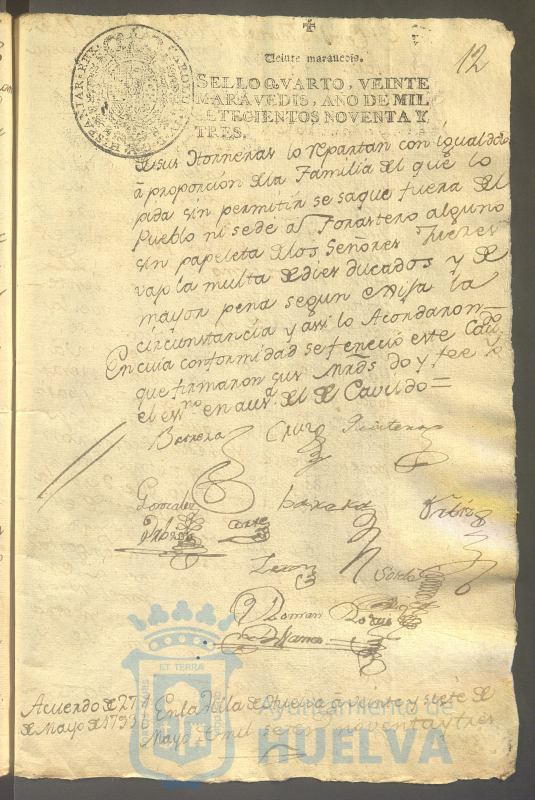 12
Veinte maravedis.
SELLO QVARTO, VEINTE
MARAVEDIS, AÑO DE MIL
SETEGIENTOS NOVENTA Y
TRES.
CAROL
HISPANIAR. REX
de sus Horneras lo repartan con igualdad
á proporcion de la Familia del que lo
pida sin permitir se saque fuera del
Pueblo ni se de á Forastero alguno
sin papeleta de los Señores Jueces
vajo la multa de dies ducados y de
mayor pena segun exija la
circunstancia y assi lo Acordaron
En cuia conformidad se fenecio este Cavdo.
que firmaron sus Mrds. doy fee yo
el esno. en aus.a del de Cavildo =
Barrera Cruz Quintero
Gonzalez Barrera
Leon Soldo
Roman
Acuerdo de 27
de Mayo de 1793
En la Villa de Huelva á veinte y siete de
Mayo de mil setecs. noventa y tres
ET TERRA
Ayuntamiento de
HUELVA